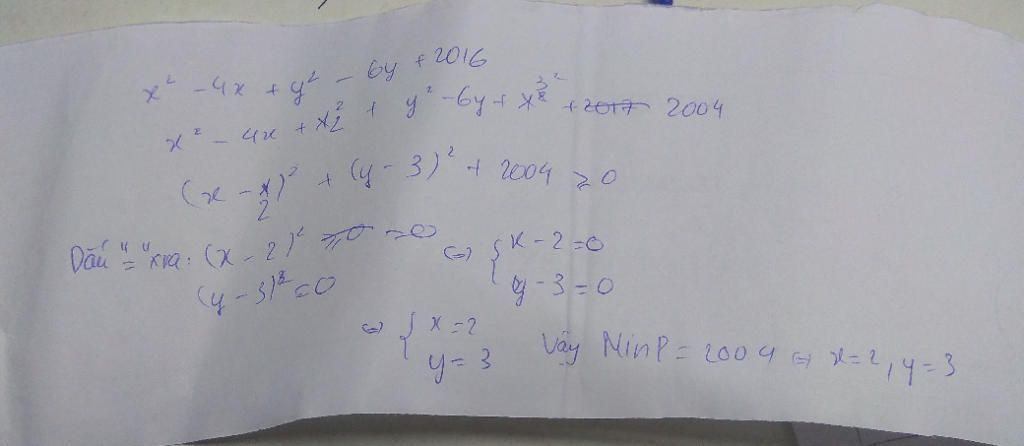 x² - 4x + y² - 6y + 2016
x² - 4x + 2² + y² - 6y + 3² + 2017 2004
(x - 2)² + (y - 3)² + 2004 ≥ 0
Dấu "=" xra: (x - 2)² ≥0 =0 <=> { x - 2 = 0
(y - 3)² = 0 y - 3 = 0
<=> { x = 2
y = 3 Vậy MinP = 2004 <=> x = 2, y = 3